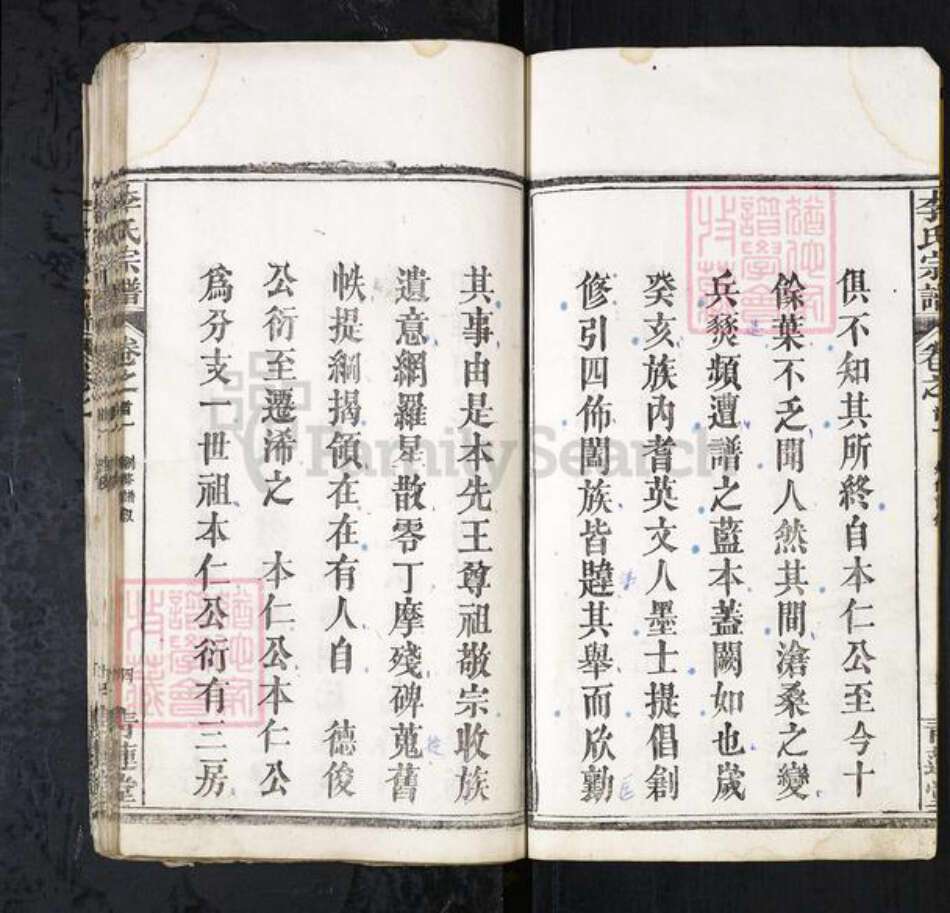 李氏宗譜
卷之
俱不知其所終自本仁公至今十
餘葉不乏聞人然其間滄桑之變
兵燹頻遭譜之藍本蓋闕如也歲
癸亥族內耆英文人墨士提倡創
修引四佈闔族皆韙其舉而欣勷
其事由是本先王尊祖敬宗收族
遺意網羅星散零丁摩殘碑蒐舊
帙提綱揭領在在有人自 德俊
公衍至遷浠之 本仁公本仁公
為分支一世祖本仁公衍有三房
李氏宗譜
卷之
青蓮堂
FamilySearch